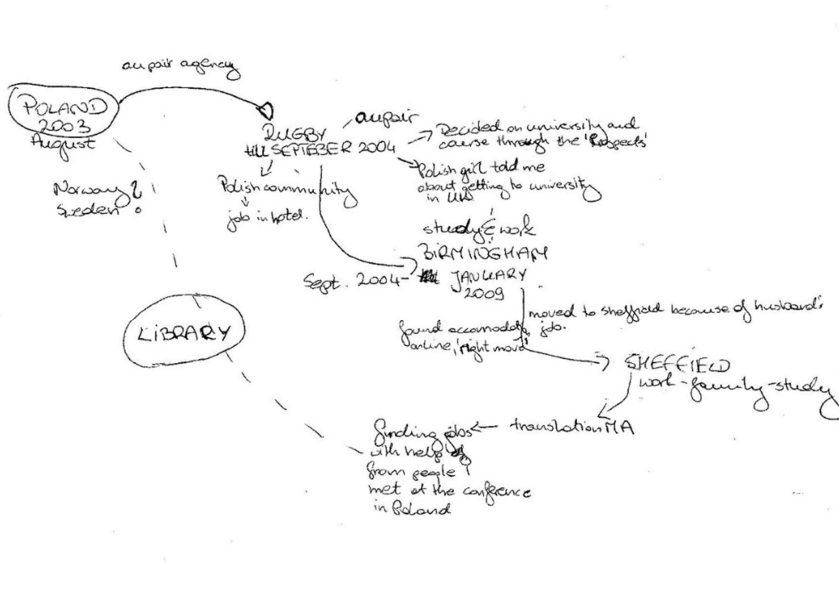 au pair agency
POLAND
2003
August
Norway ?
Sweden
aupair
RUGBY
till SEPTEBER 2004
Decided on university and
course through the 'Prospects'
Polish girl told me
about getting to university
in UK
Polish community
job in hotel.
study & work
BIRMINGHAM
Sept. 2004 - JANUARY
2009
moved to Sheffield because of husband's
job.
found accomodat
online, 'right move'
LIBRARY
SHEFFIELD
work - family - study
translation MA
finding jobs
with help
from people
met at the conference
in Poland